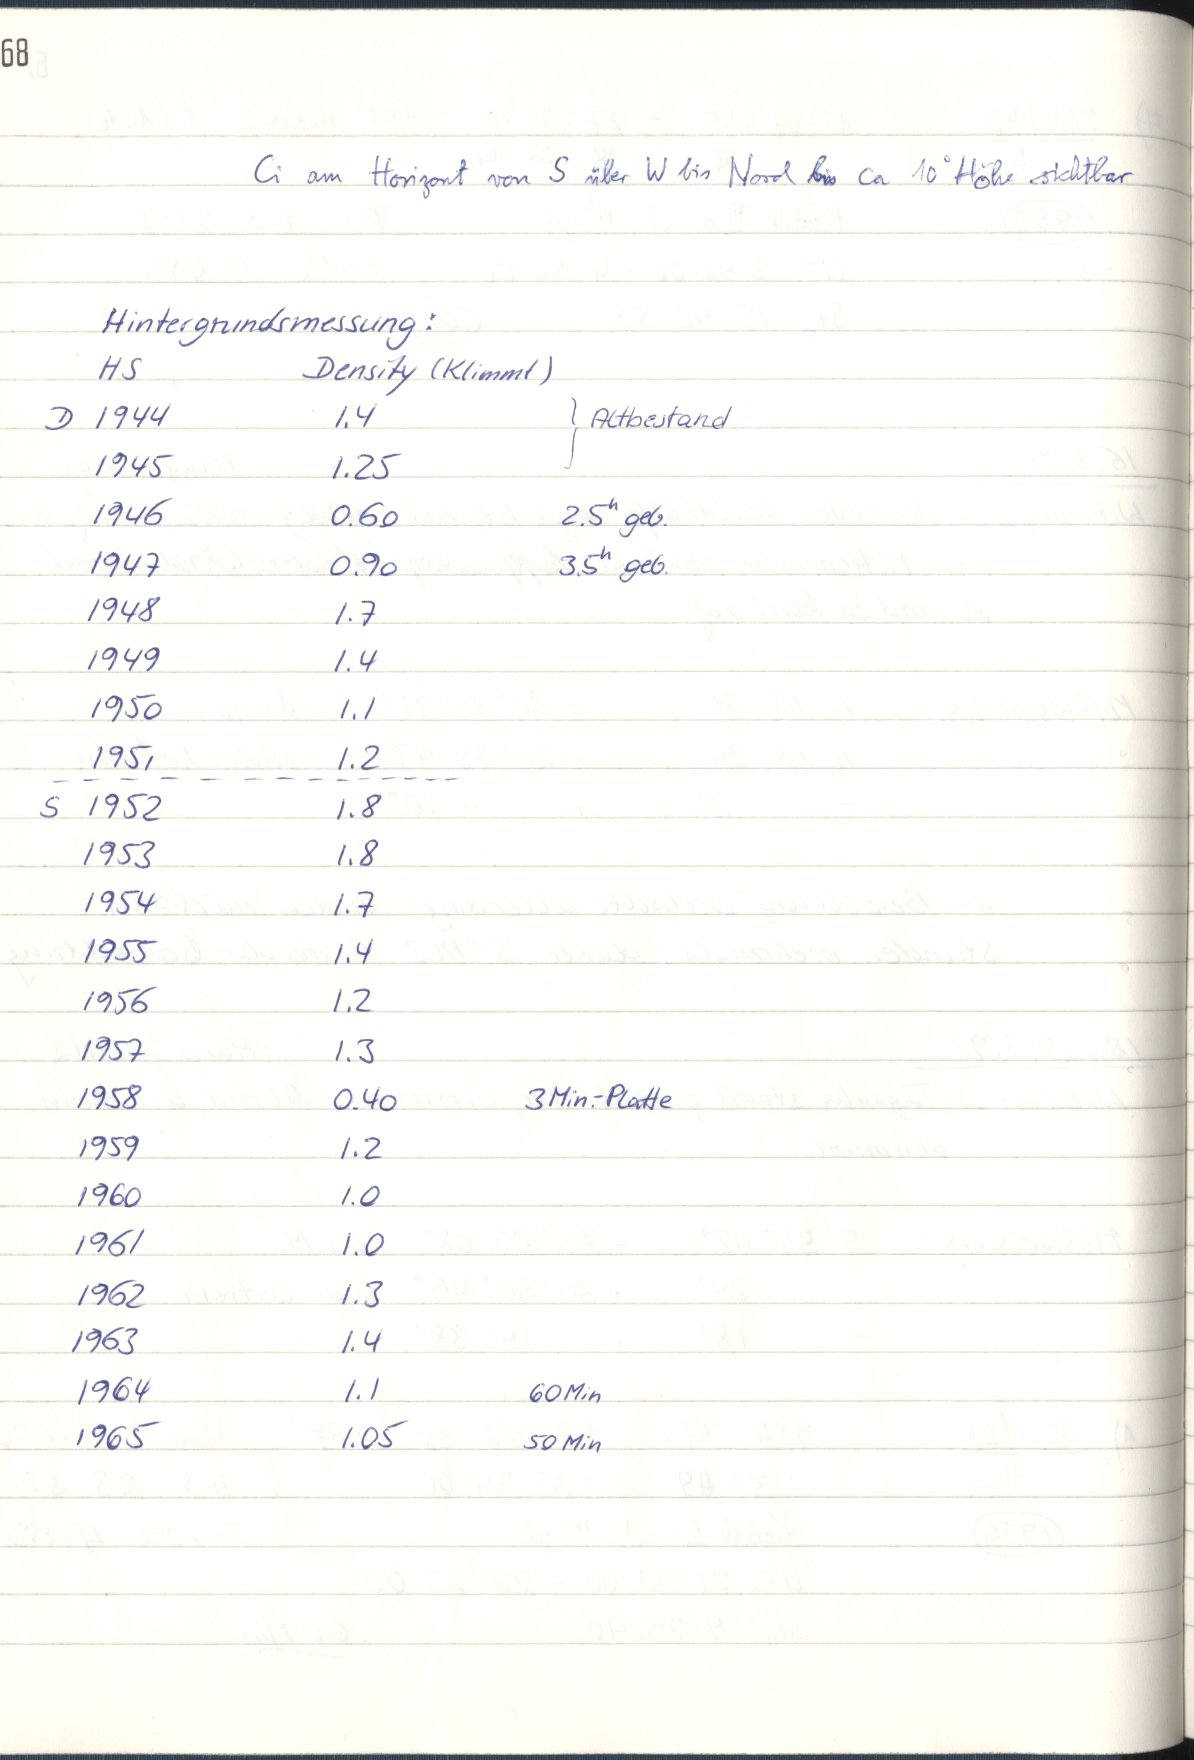 68
Ci am Horizont von S über W bis Nord bis ca 10° Höhe sichtbar
Hintergrundsmessung:
HS Density (Klimmt)
D 1944 1.4 } Altbestand
1945 1.25
1946 0.60 2.5h geb.
1947 0.90 3.5h geb.
1948 1.7
1949 1.4
1950 1.1
1951 1.2
S 1952 1.8
1953 1.8
1954 1.7
1955 1.4
1956 1.2
1957 1.3
1958 0.40 3 Min.-Platte
1959 1.2
1960 1.0
1961 1.0
1962 1.3
1963 1.4
1964 1.1 60 Min
1965 1.05 50 Min